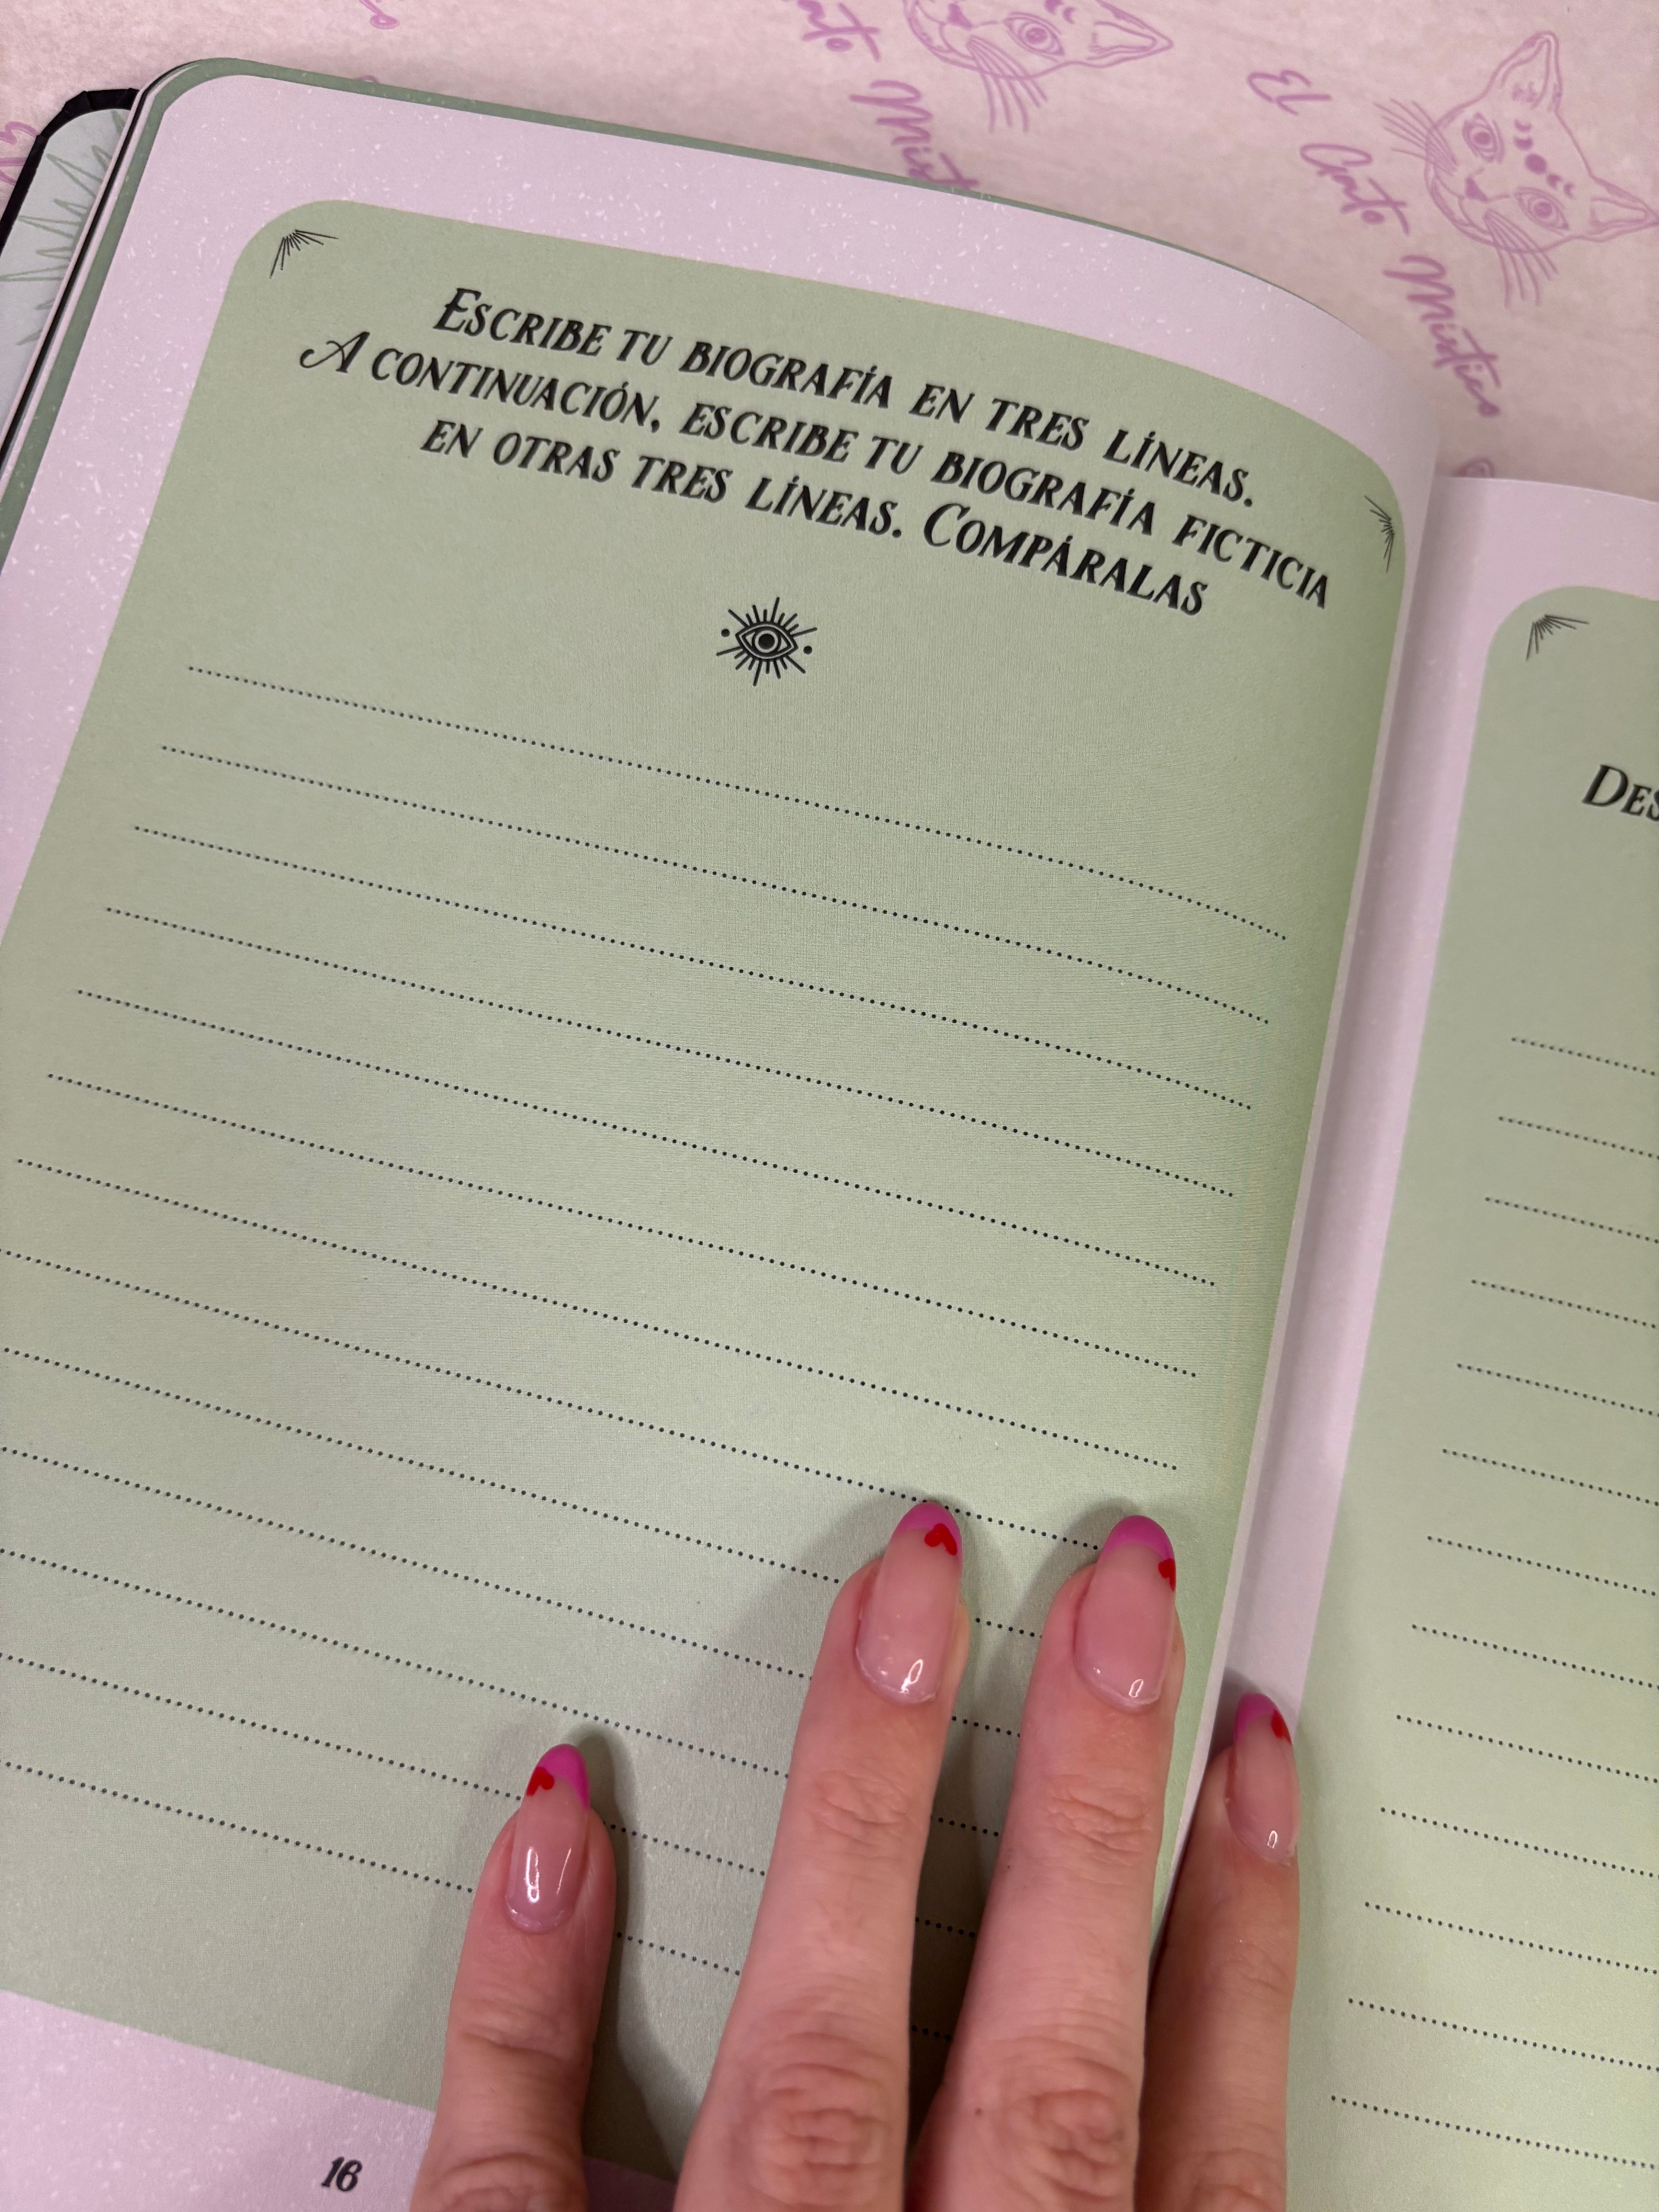 Escribe tu biografía en tres líneas.
A continuación, escribe tu biografía ficticia
en otras tres líneas. Compáralas
16
El Gato Místico
Gato Míst
Des